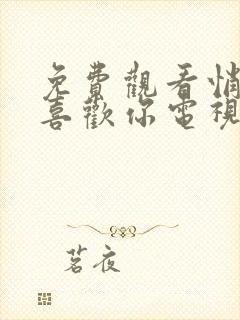 免費觀看悄
喜歡你電視
茗夜